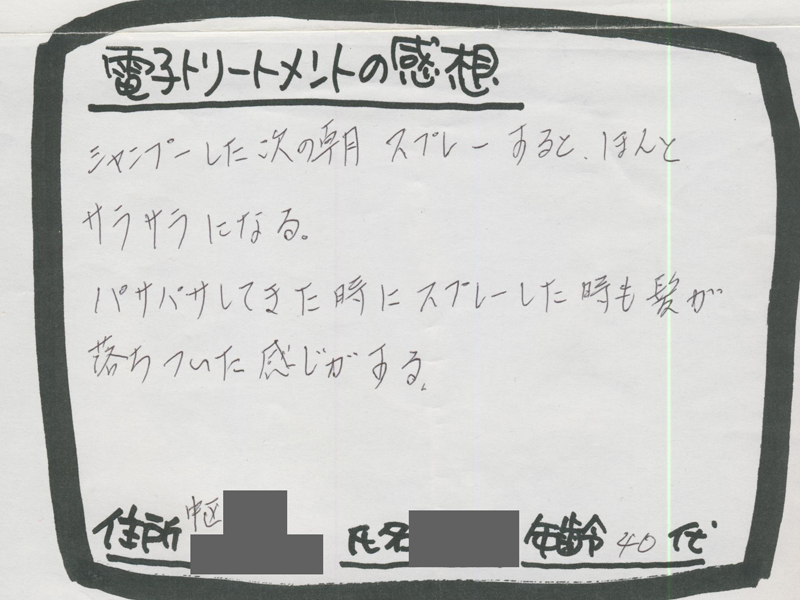 電子トリートメントの感想
シャンプーした次の朝 スプレーすると、ほんと
サラサラになる。
パサパサしてきた時にスプレーした時も髪が
落ちついた感じがする。
住所 中区 氏名 年齢 40代